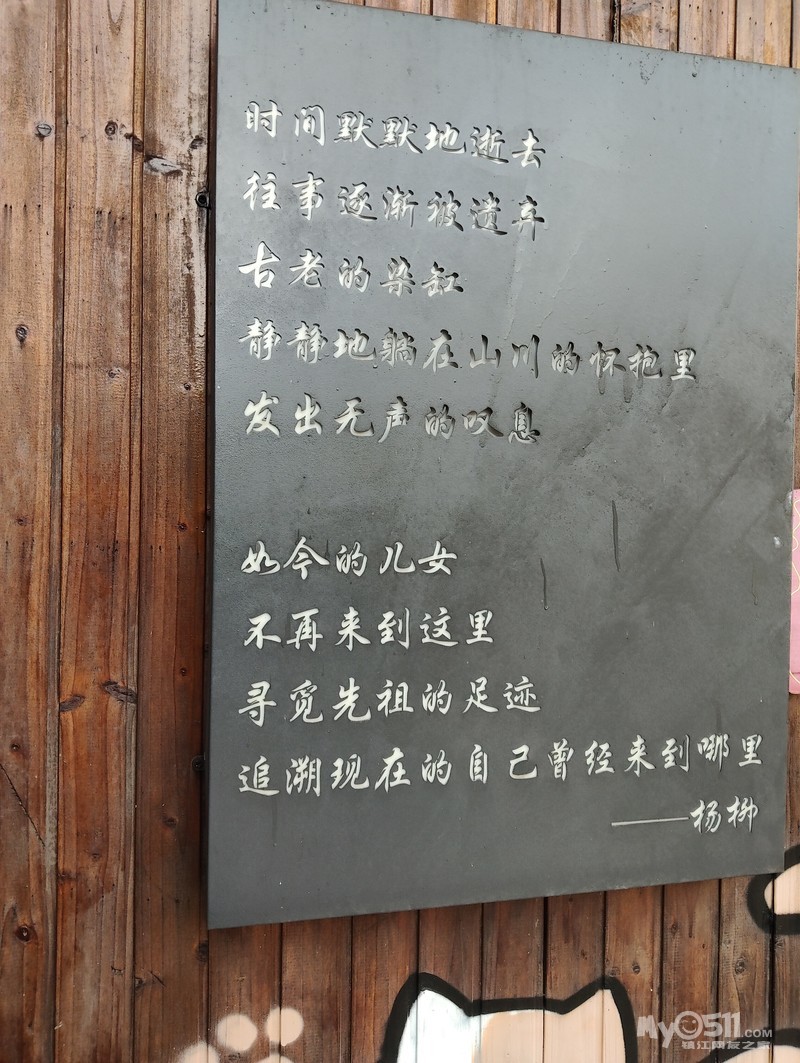 时间默默地逝去
往事逐渐被遗弃
古老的染缸
静静地躺在山川的怀抱里
发出无声的叹息
如今的儿女
不再来到这里
寻觅先祖的足迹
追溯现在的自己曾经来到哪里
——杨柳
My0511.COM
镇江网友之家